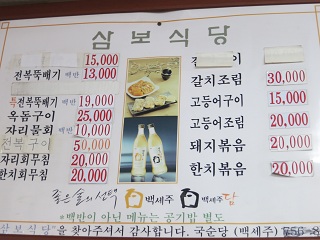 삼보식당
15,000
전복뚝배기 백반 13,000
특전복뚝배기 백반 19,000
옥돔구이 25,000
자리물회 백반 10,000
전복구이 50,000
자리회무침 20,000
한치회무침 20,000
갈치조림 30,000
고등어구이 15,000
고등어조림 20,000
돼지볶음 20,000
한치볶음 20,000
좋은 술의 선택 백세주 백세주담
*백반이 아닌 메뉴는 공기밥 별도
삼보식당"을 찾아주셔서 감사합니다. 국순당 (백세주)